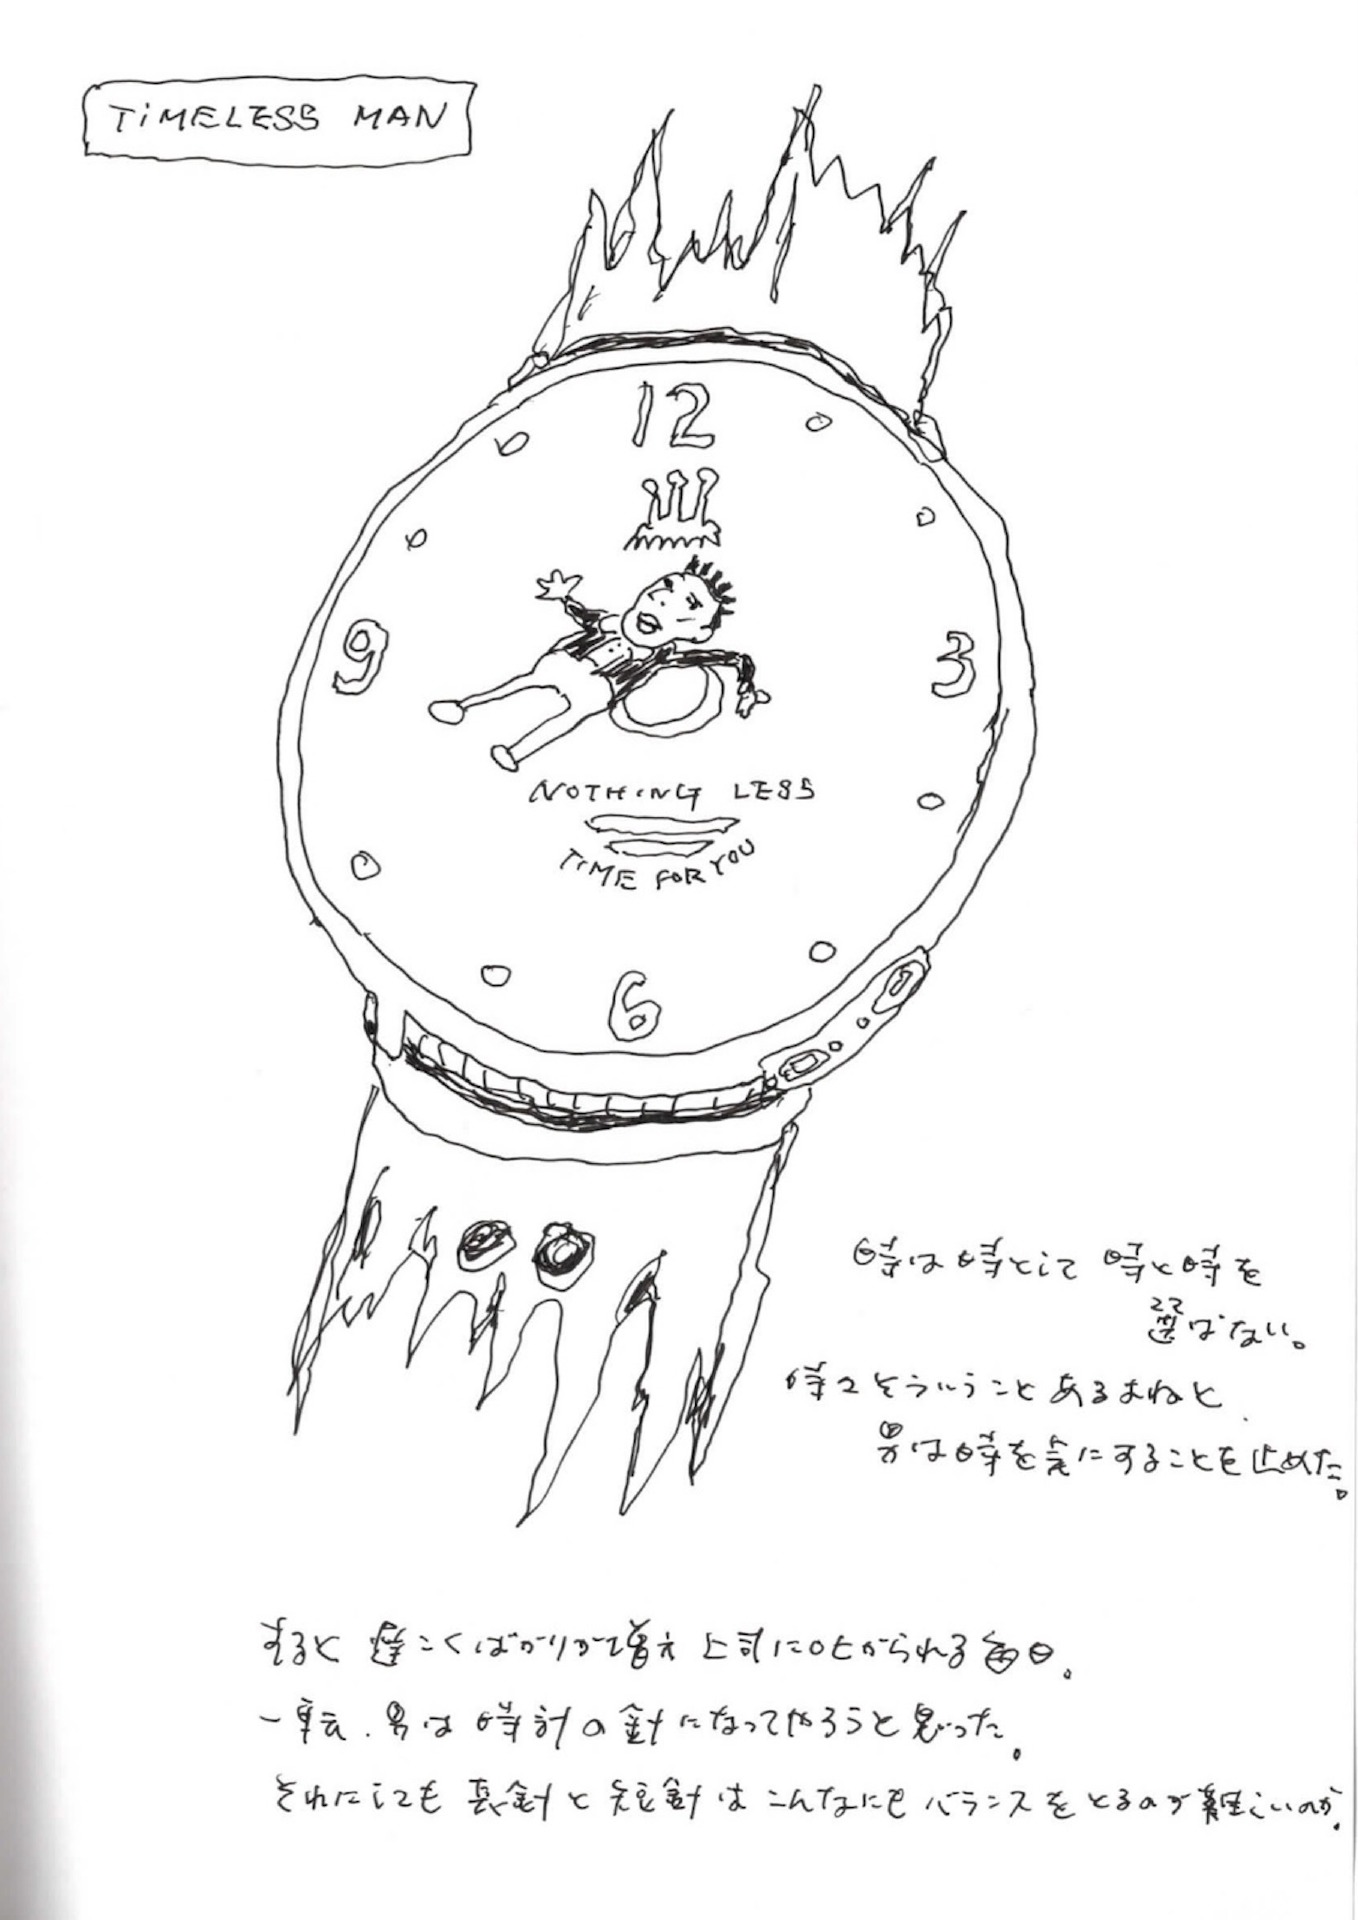 TiMELESS MAN
12
9
3
NOTHING LESS
TIME FOR YOU
6
時は時として 時と時を
選ばない。
時々そういうことあるよねと、
男は時を気にすることを止めた。
すると 遅こくばかりが増え 上司に叱られる毎日。
一転、男は 時計の針になってやろうと思った。
それにしても 長針と短針は こんなにも バランスをとるのが難しいのか。